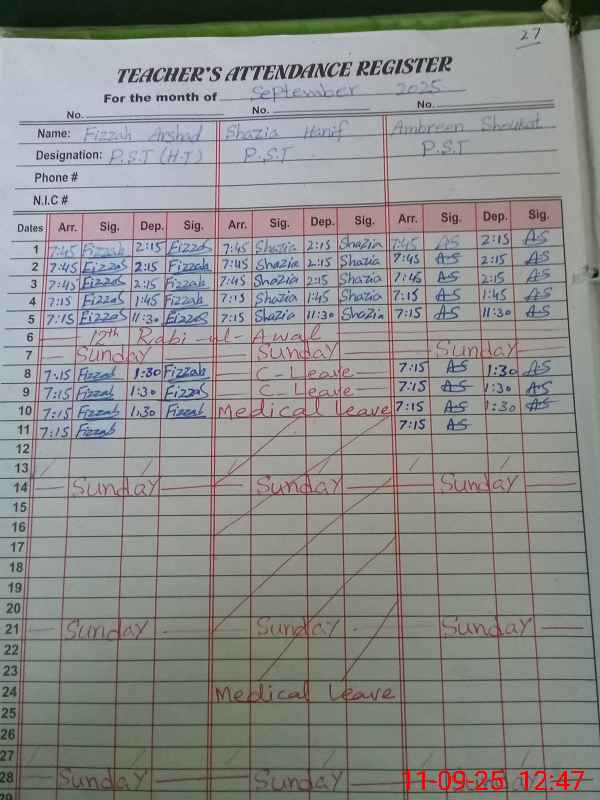 27
TEACHER'S ATTENDANCE REGISTER
For the month of September 2025
No. No. No.
Name: Fizzah Arshad Shazia Hanif Ambreen Shoukat
Designation: P.S.T (H-T) P.S.T P.S.T
Phone #
N.I.C #
Dates Arr. Sig. Dep. Sig. Arr. Sig. Dep. Sig. Arr. Sig. Dep. Sig.
1 7:45 Fizzah 2:15 Fizzah 7:45 Shazia 2:15 Shazia 7:45 AS 2:15 AS
2 7:45 Fizzah 2:15 Fizzah 7:45 Shazia 2:15 Shazia 7:45 AS 2:15 AS
3 7:45 Fizzah 2:15 Fizzah 7:45 Shazia 2:15 Shazia 7:45 AS 2:15 AS
4 7:15 Fizzah 1:45 Fizzah 7:15 Shazia 1:45 Shazia 7:15 AS 1:45 AS
5 7:15 Fizzah 11:30 Fizzah 7:15 Shazia 11:30 Shazia 7:15 AS 11:30 AS
6 12th Rabi-ul-Awal
7 Sunday Sunday Sunday
8 7:15 Fizzah 1:30 Fizzah C-Leave 7:15 AS 1:30 AS
9 7:15 Fizzah 1:30 Fizzah C-Leave 7:15 AS 1:30 AS
10 7:15 Fizzah 1:30 Fizzah Medical leave 7:15 AS 1:30 AS
11 7:15 Fizzah 7:15 AS
12
13
14 Sunday Sunday Sunday
15
16
17
18
19
20
21 Sunday Sunday Sunday
22
23
24 Medical leave
25
26
27
28 Sunday Sunday Sunday
29
11-09-25 12:47